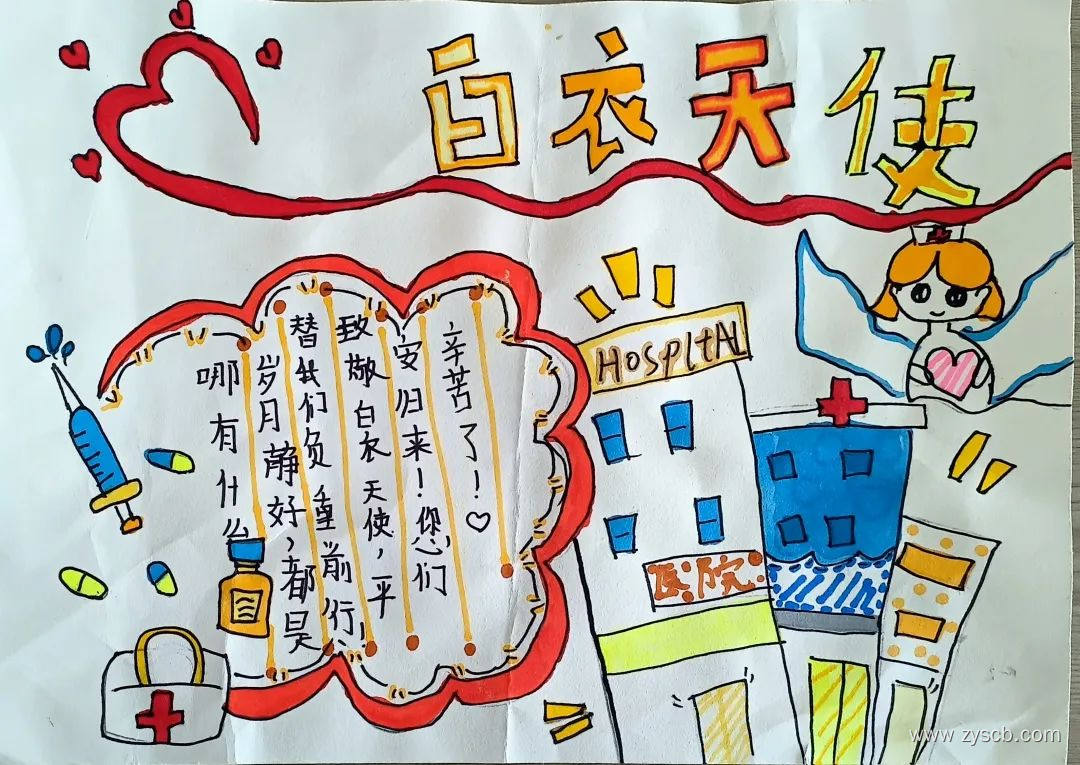 白衣天使
哪有什么
岁月静好,都是
替我们负重前行!
致敬白衣天使,平
安归来!您们
辛苦了!♡
HospItAL
医院
www.zyscb.com